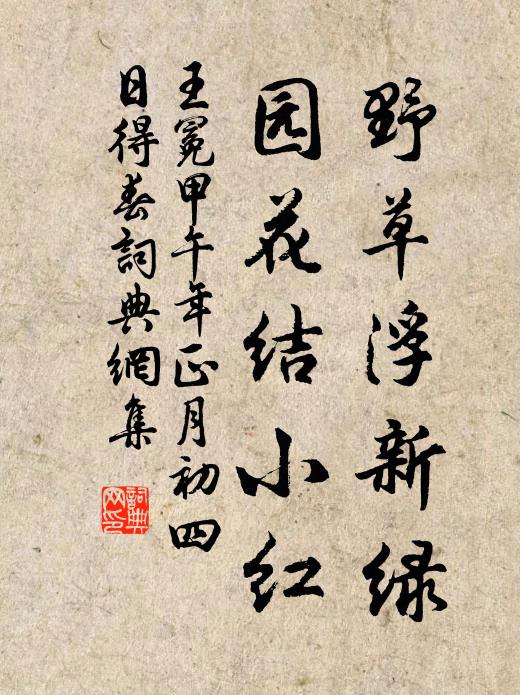 野草浮新绿
园花结小红
王冕甲午年正月初四
日得春詞典網集
詞典
网印